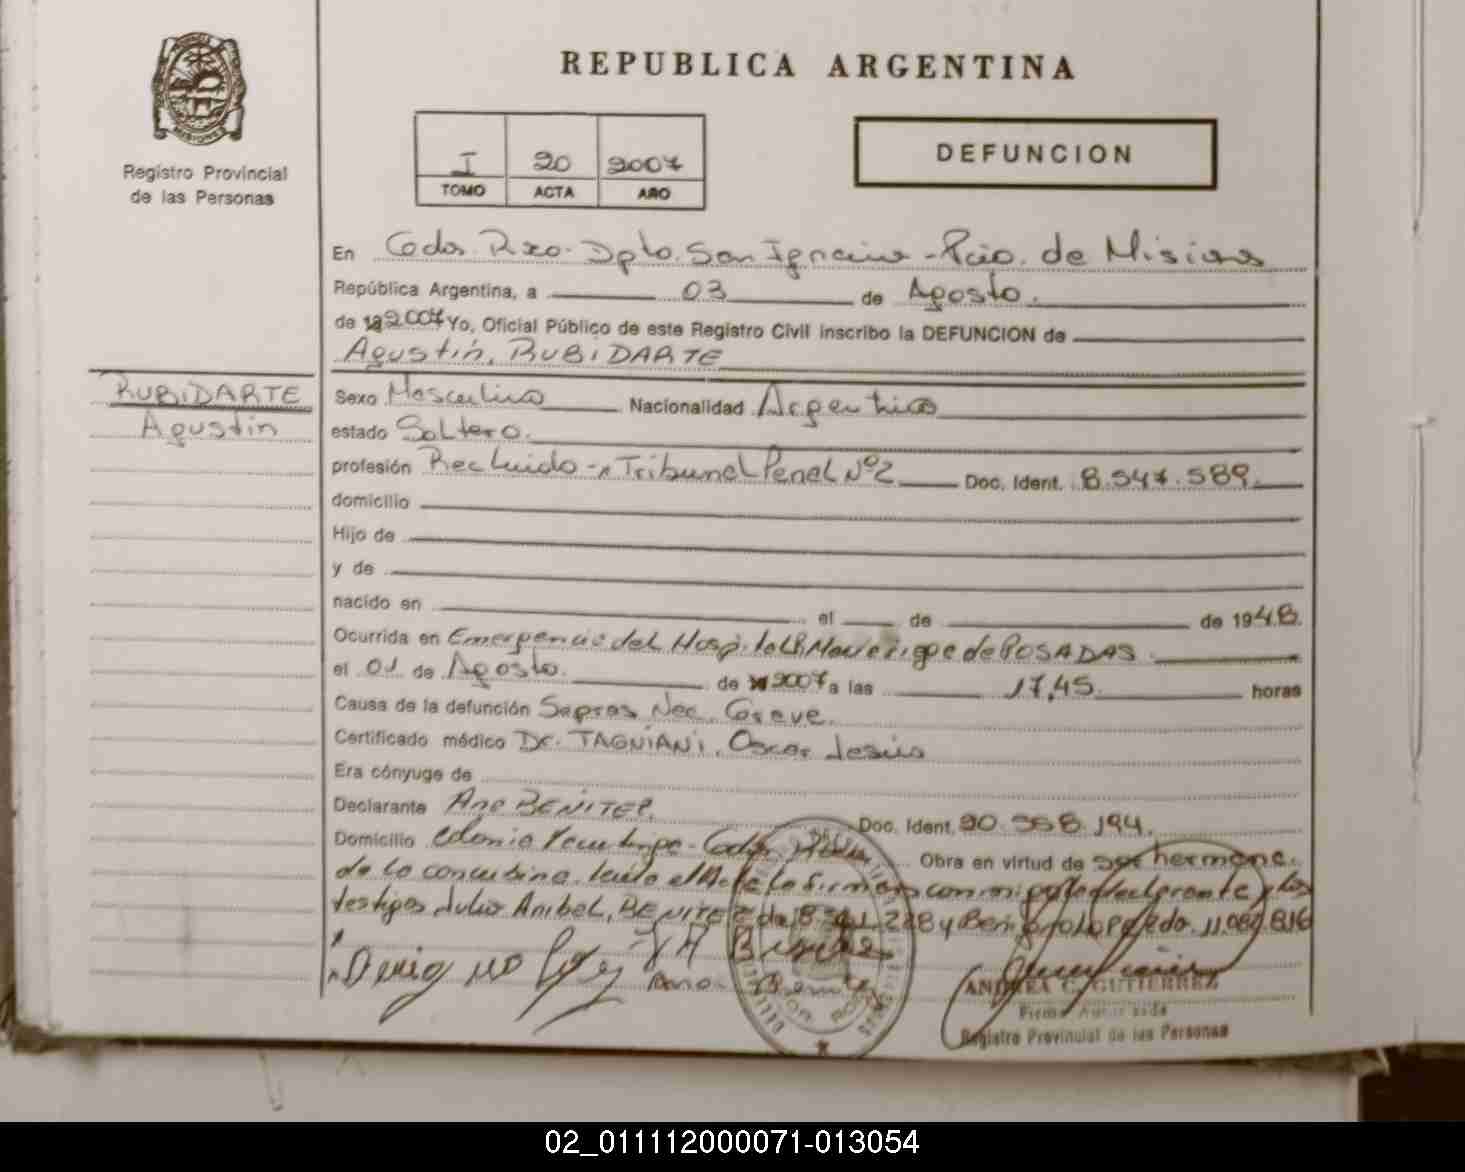 REPUBLICA ARGENTINA
Registro Provincial
de las Personas
I 20 2007
TOMO ACTA AÑO
DEFUNCION
En Gdor. Roo. Dpto. San Ignacio - Pcio. de Misiones
República Argentina, a 03 de Agosto.
de 2007 Yo, Oficial Público de este Registro Civil inscribo la DEFUNCION de
Agustín, RUBIDARTE
RUBIDARTE
Agustin
Sexo Masculino Nacionalidad Argentino
estado Soltero.
profesión Recluido - Tribunal Penal Nº2 Doc. Ident. 8.547.589.
domicilio
Hijo de
y de
nacido en el de de 1948.
Ocurrida en Emergencia del Hospital R Madariaga de POSADAS.
el 01 de Agosto. de 2007 a las 17,45 horas
Causa de la defunción Nec. Greve.
Certificado médico Dr. TAGNIANI, Oscar Jesús
Era cónyuge de
Declarante Ana BENITEZ. Doc. Ident. 20.558.194.
Domicilio Colonia Obra en virtud de ser hermana.
de la concubina. leida el Acta la firman conmigo la declarante y los
testigos Julio Anibal, BENITEZ y 11.082.816
Ana Benitez
ANDREA C. GUTIERREZ
Firma Autorizada
Registro Provincial de las Personas
02_011112000071-013054